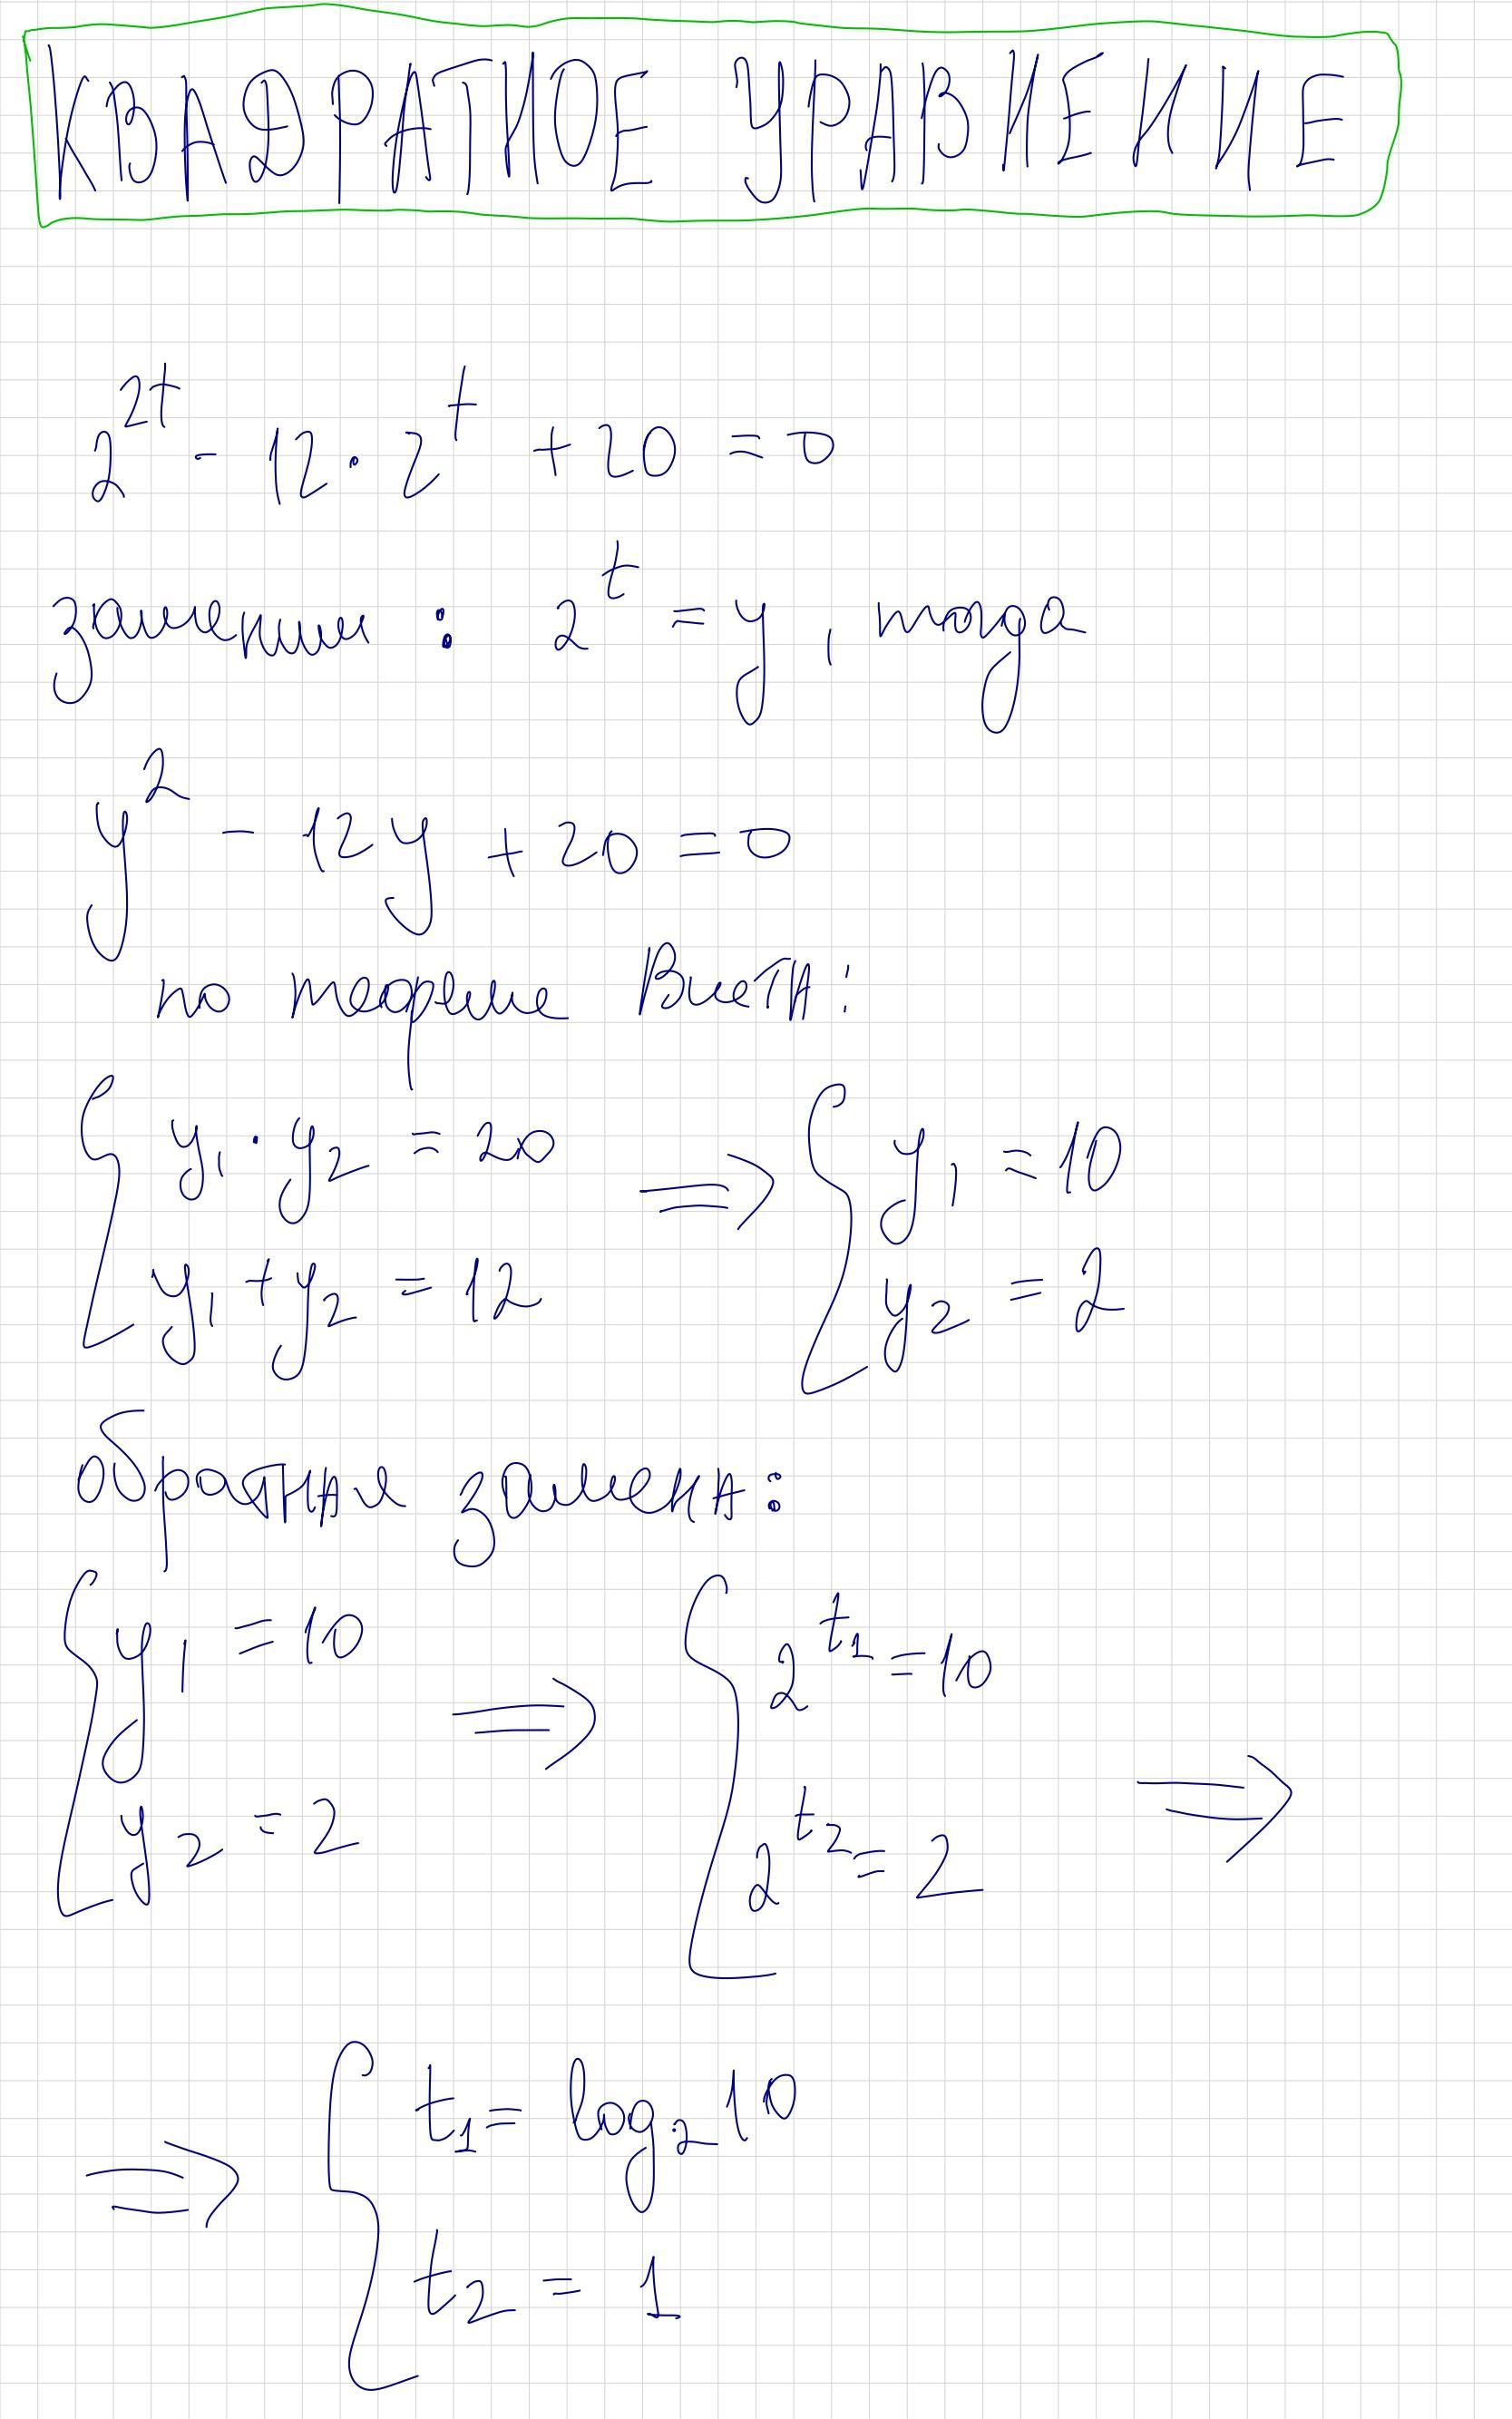 КВАДРАТНОЕ УРАВНЕНИЕ
2^{2t} - 12 · 2^t + 20 = 0
заменим : 2^t = y, тогда
y^2 - 12y + 20 = 0
по теореме Виета:
{ y_1 · y_2 = 20 ⇒ { y_1 = 10
y_1 + y_2 = 12 y_2 = 2
обратная замена:
{ y_1 = 10 ⇒ { 2^{t_1} = 10
y_2 = 2 2^{t_2} = 2 ⇒
⇒ { t_1 = log_2 10
t_2 = 1